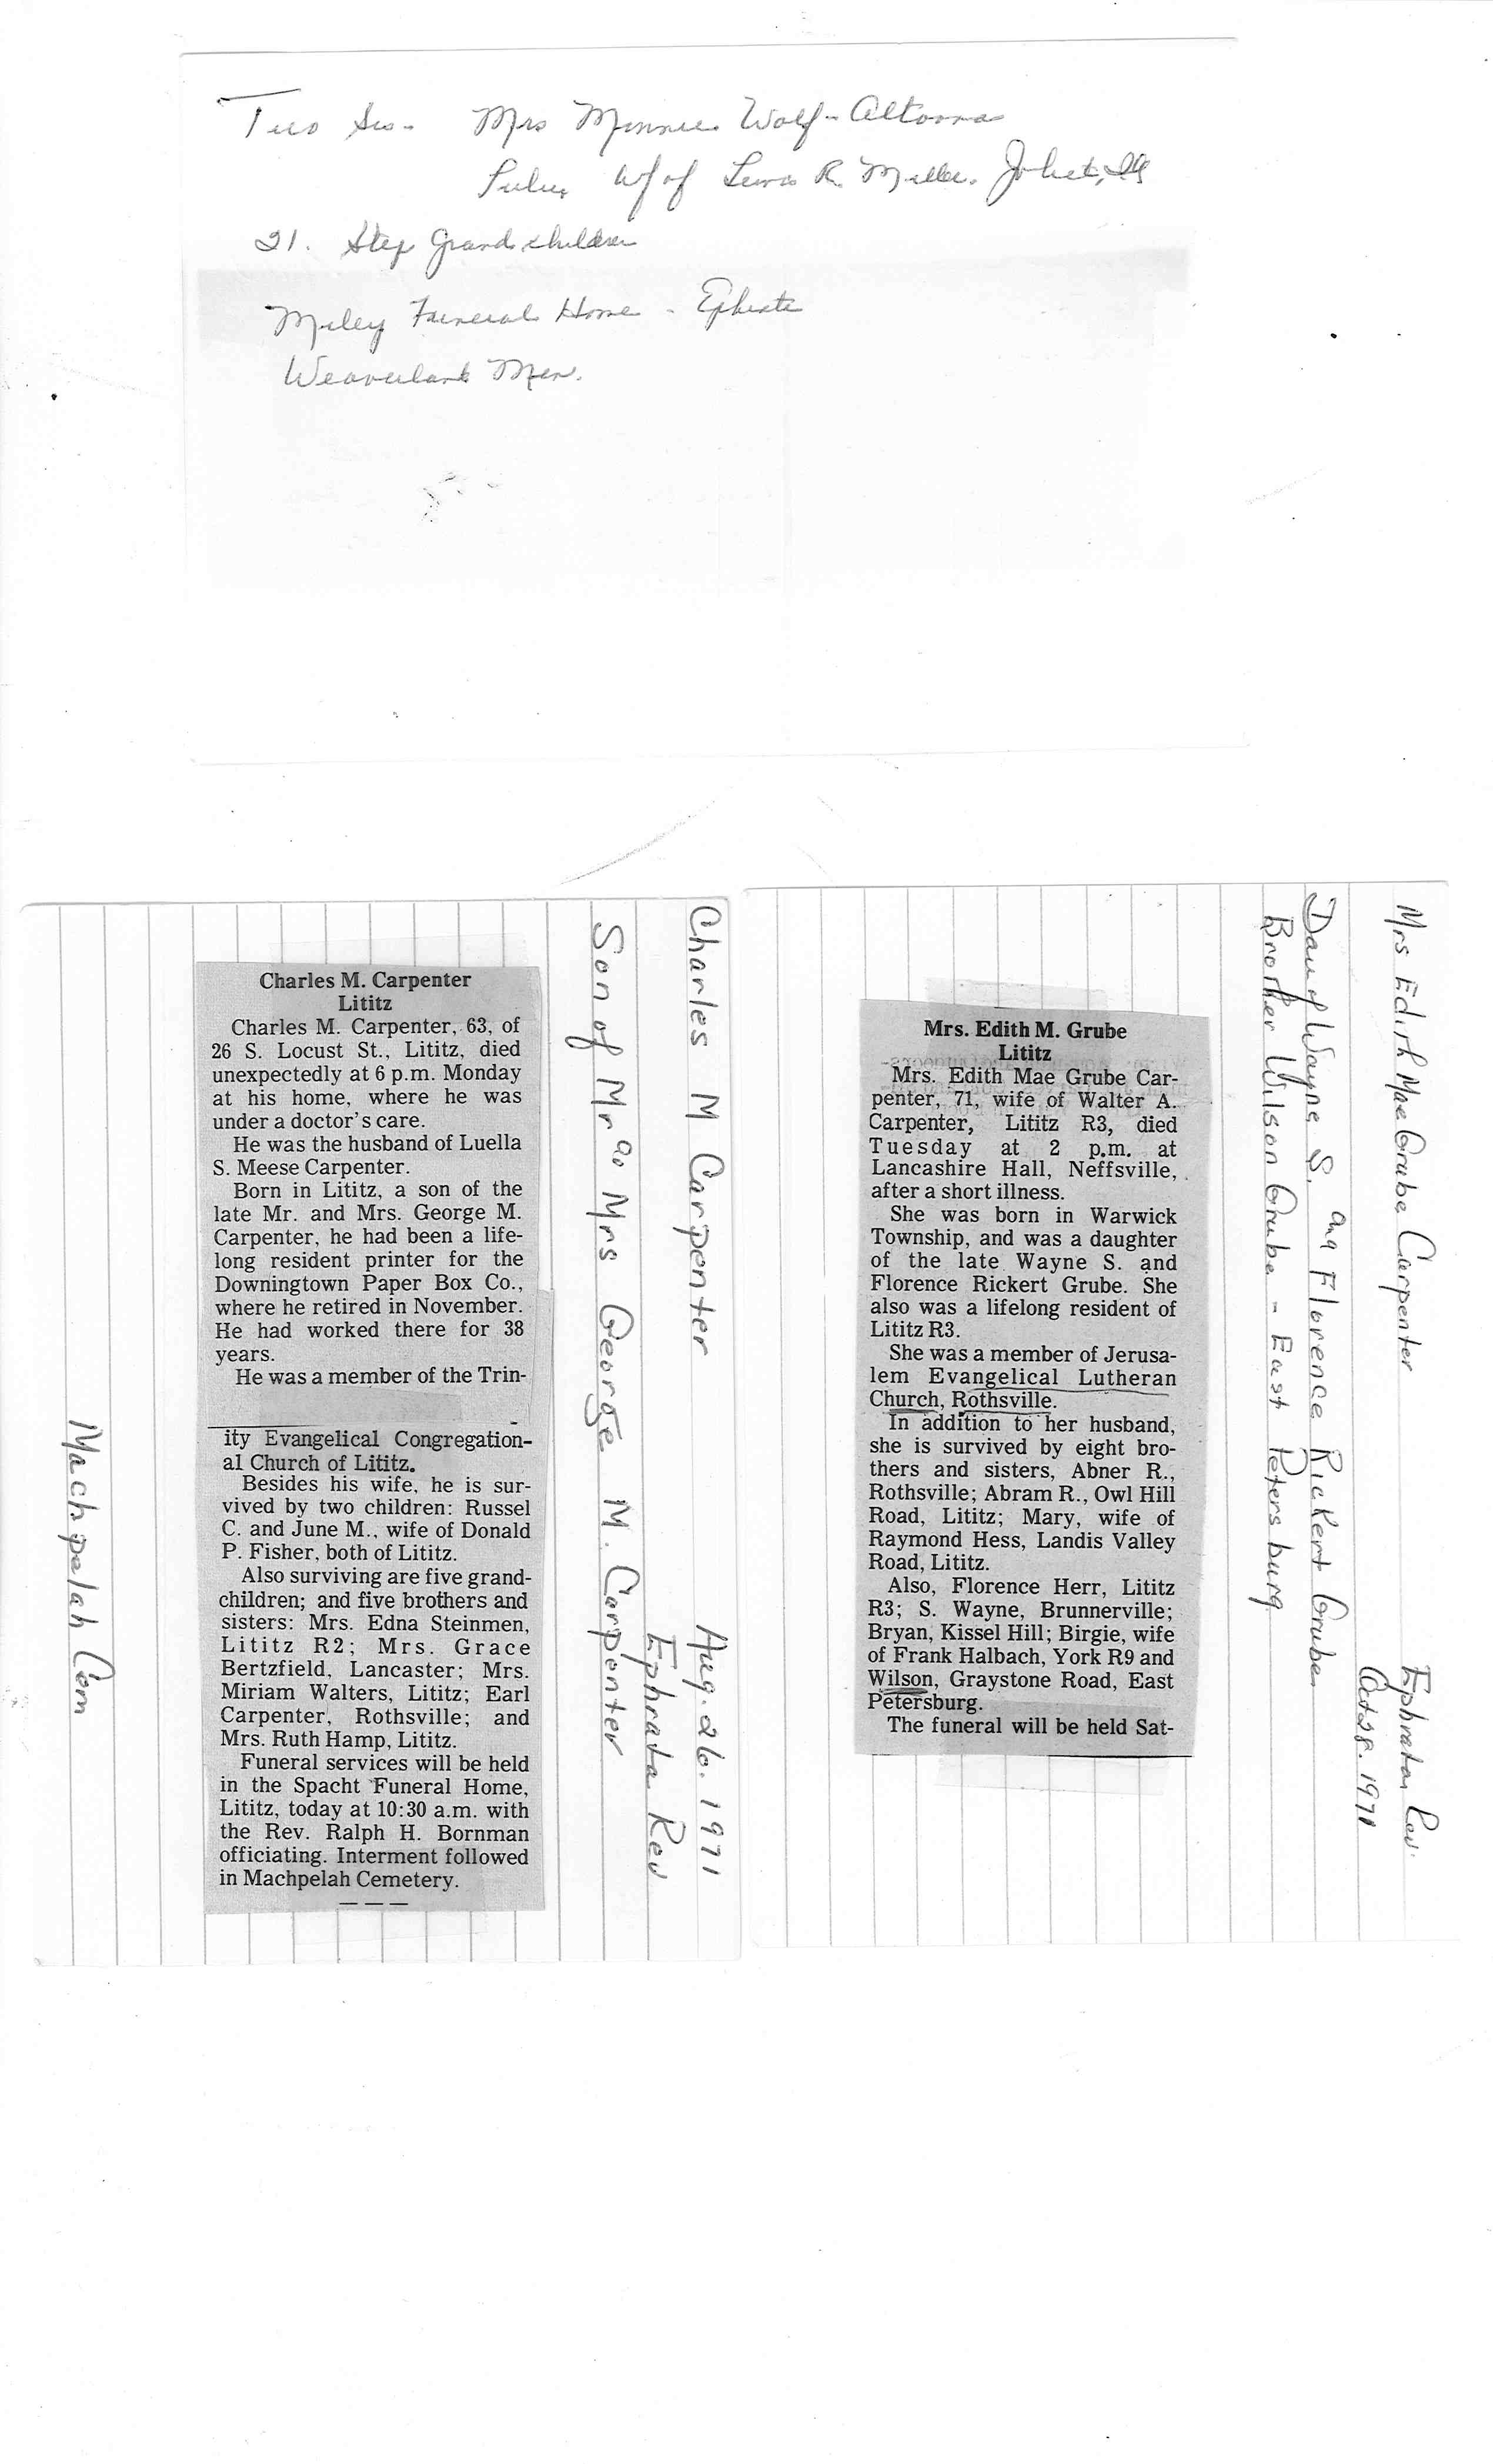 Two Sis- Mrs Minnie Wolf - Altoona
w/of R. Miller. Joliet, Ill
21. Step Grandchildren
Funeral Home - Ephrata
Weaverland Men.
Charles M. Carpenter
Lititz
Charles M. Carpenter, 63, of
26 S. Locust St., Lititz, died
unexpectedly at 6 p.m. Monday
at his home, where he was
under a doctor's care.
He was the husband of Luella
S. Meese Carpenter.
Born in Lititz, a son of the
late Mr. and Mrs. George M.
Carpenter, he had been a life-
long resident printer for the
Downingtown Paper Box Co.,
where he retired in November.
He had worked there for 38
years.
He was a member of the Trin-
ity Evangelical Congregation-
al Church of Lititz.
Besides his wife, he is sur-
vived by two children: Russel
C. and June M., wife of Donald
P. Fisher, both of Lititz.
Also surviving are five grand-
children; and five brothers and
sisters: Mrs. Edna Steinmen,
Lititz R2; Mrs. Grace
Bertzfield, Lancaster; Mrs.
Miriam Walters, Lititz; Earl
Carpenter, Rothsville; and
Mrs. Ruth Hamp, Lititz.
Funeral services will be held
in the Spacht Funeral Home,
Lititz, today at 10:30 a.m. with
the Rev. Ralph H. Bornman
officiating. Interment followed
in Machpelah Cemetery.
Charles M Carpenter
Aug. 26. 1971
Ephrata Rev
Son of Mr ao Mrs George M. Carpenter
Machpelah Cem
Mrs. Edith M. Grube
Lititz
Mrs. Edith Mae Grube Car-
penter, 71, wife of Walter A.
Carpenter, Lititz R3, died
Tuesday at 2 p.m. at
Lancashire Hall, Neffsville,
after a short illness.
She was born in Warwick
Township, and was a daughter
of the late Wayne S. and
Florence Rickert Grube. She
also was a lifelong resident of
Lititz R3.
She was a member of Jerusa-
lem Evangelical Lutheran
Church, Rothsville.
In addition to her husband,
she is survived by eight bro-
thers and sisters, Abner R.,
Rothsville; Abram R., Owl Hill
Road, Lititz; Mary, wife of
Raymond Hess, Landis Valley
Road, Lititz.
Also, Florence Herr, Lititz
R3; S. Wayne, Brunnerville;
Bryan, Kissel Hill; Birgie, wife
of Frank Halbach, York R9 and
Wilson, Graystone Road, East
Petersburg.
The funeral will be held Sat-
Mrs Edith Mae Grube Carpenter
Ephrata Rev.
Oct 28. 1971
Dau of Wayne S. and Florence Rickert Grube
Brother Wilson Grube - East Petersburg